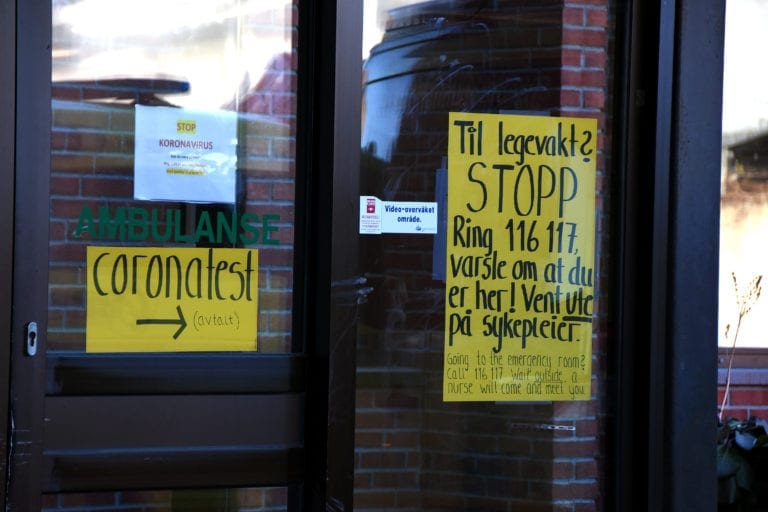 STOP
KORONAVIRUS
AMBULANSE
coronatest
(avtalt)
Video-overvåket
område.
Til legevakt?
STOPP
Ring 116 117,
varsle om at du
er her! Vent ute
på sykepleier.
Going to the emergency room?
Call 116 117. Wait outside, a
nurse will come and meet you.